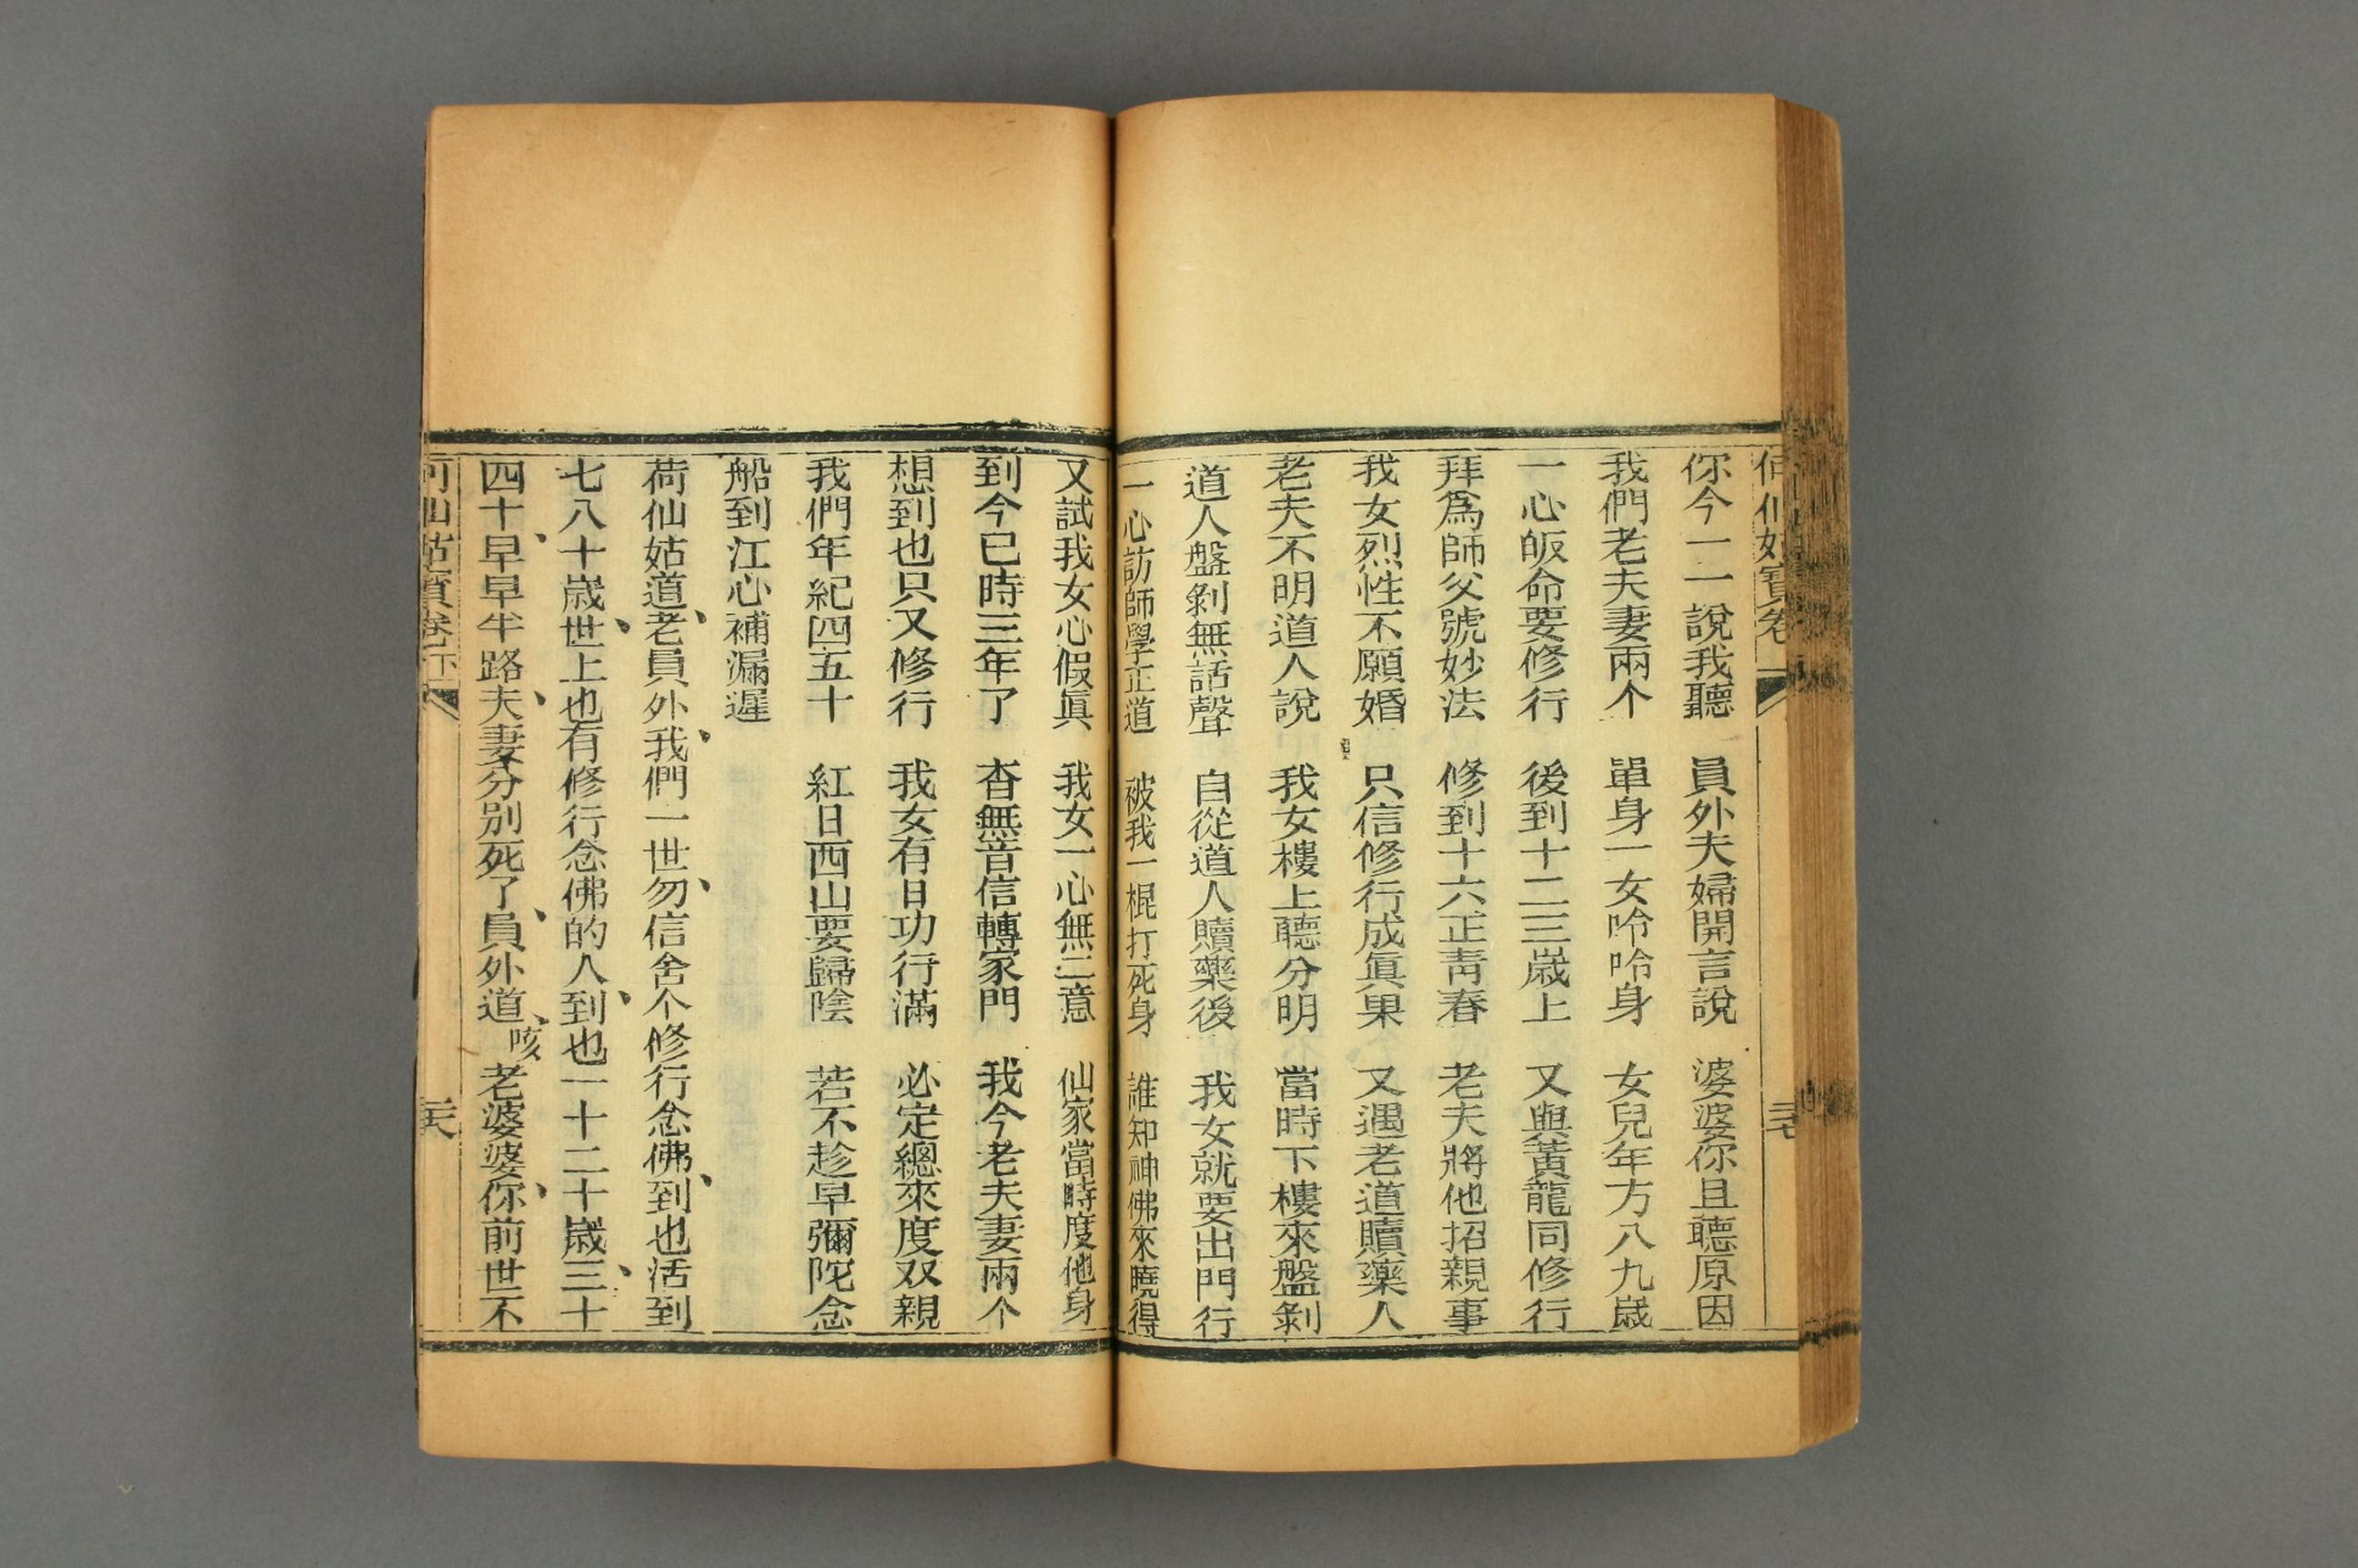 何仙姑寶卷 三七
你今一一說我聽 員外夫婦開言說 婆婆你且聽原因
我們老夫妻兩个 單身一女呤呤身 女兒年方八九歲
一心皈命要修行 後到十二三歲上 又與黃龍同修行
拜爲師父號妙法 修到十六正靑春 老夫將他招親事
我女烈性不願婚 只信修行成眞果 又遇老道贖藥人
老夫不明道人說 我女樓上聽分明 當時下樓來盤剝
道人盤剝無話聲 自從道人贖藥後 我女就要出門行
一心訪師學正道 被我一棍打死身 誰知神佛來曉得
又試我女心假眞 我女一心無二意 仙家當時度他身
到今已時三年了 杳無音信轉家門 我今老夫妻兩个
想到也只又修行 我女有日功行滿 必定總來度双親
我們年紀四五十 紅日西山要歸陰 若不趁早彌陀念
船到江心補漏遲
荷仙姑道、老員外、我們一世勿、信舍个修行念佛、到也活到
七八十歲、世上也有修行念佛的人、到也一十二十歲、三十
四十、早早半路、夫妻分別死了、員外道、咳老婆婆、你前世不
何仙姑寶卷下 三六